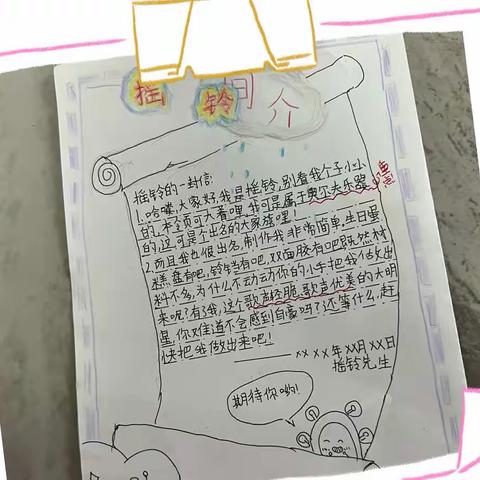 摇铃简介
摇铃的一封信:
1.哈喽,大家好,我是摇铃,别看我个子小小
的,本领可大着哩,我可是属于奥尔夫乐器
的,这可是个出名的大家族哩!
2.而且我也很出名,制作我非常简单,生日蛋
糕盘有吧,铃铛有吧,双面胶有吧既然材
料不多,为什么不动动你的小手把我做出
来呢?有了我,这个歌声轻脆,歌声优美的大明
星,你难道不会感到自豪吗?还等什么,赶
快把我做出来吧!
xxxx年xx月xx日
摇铃先生
期待你哟!